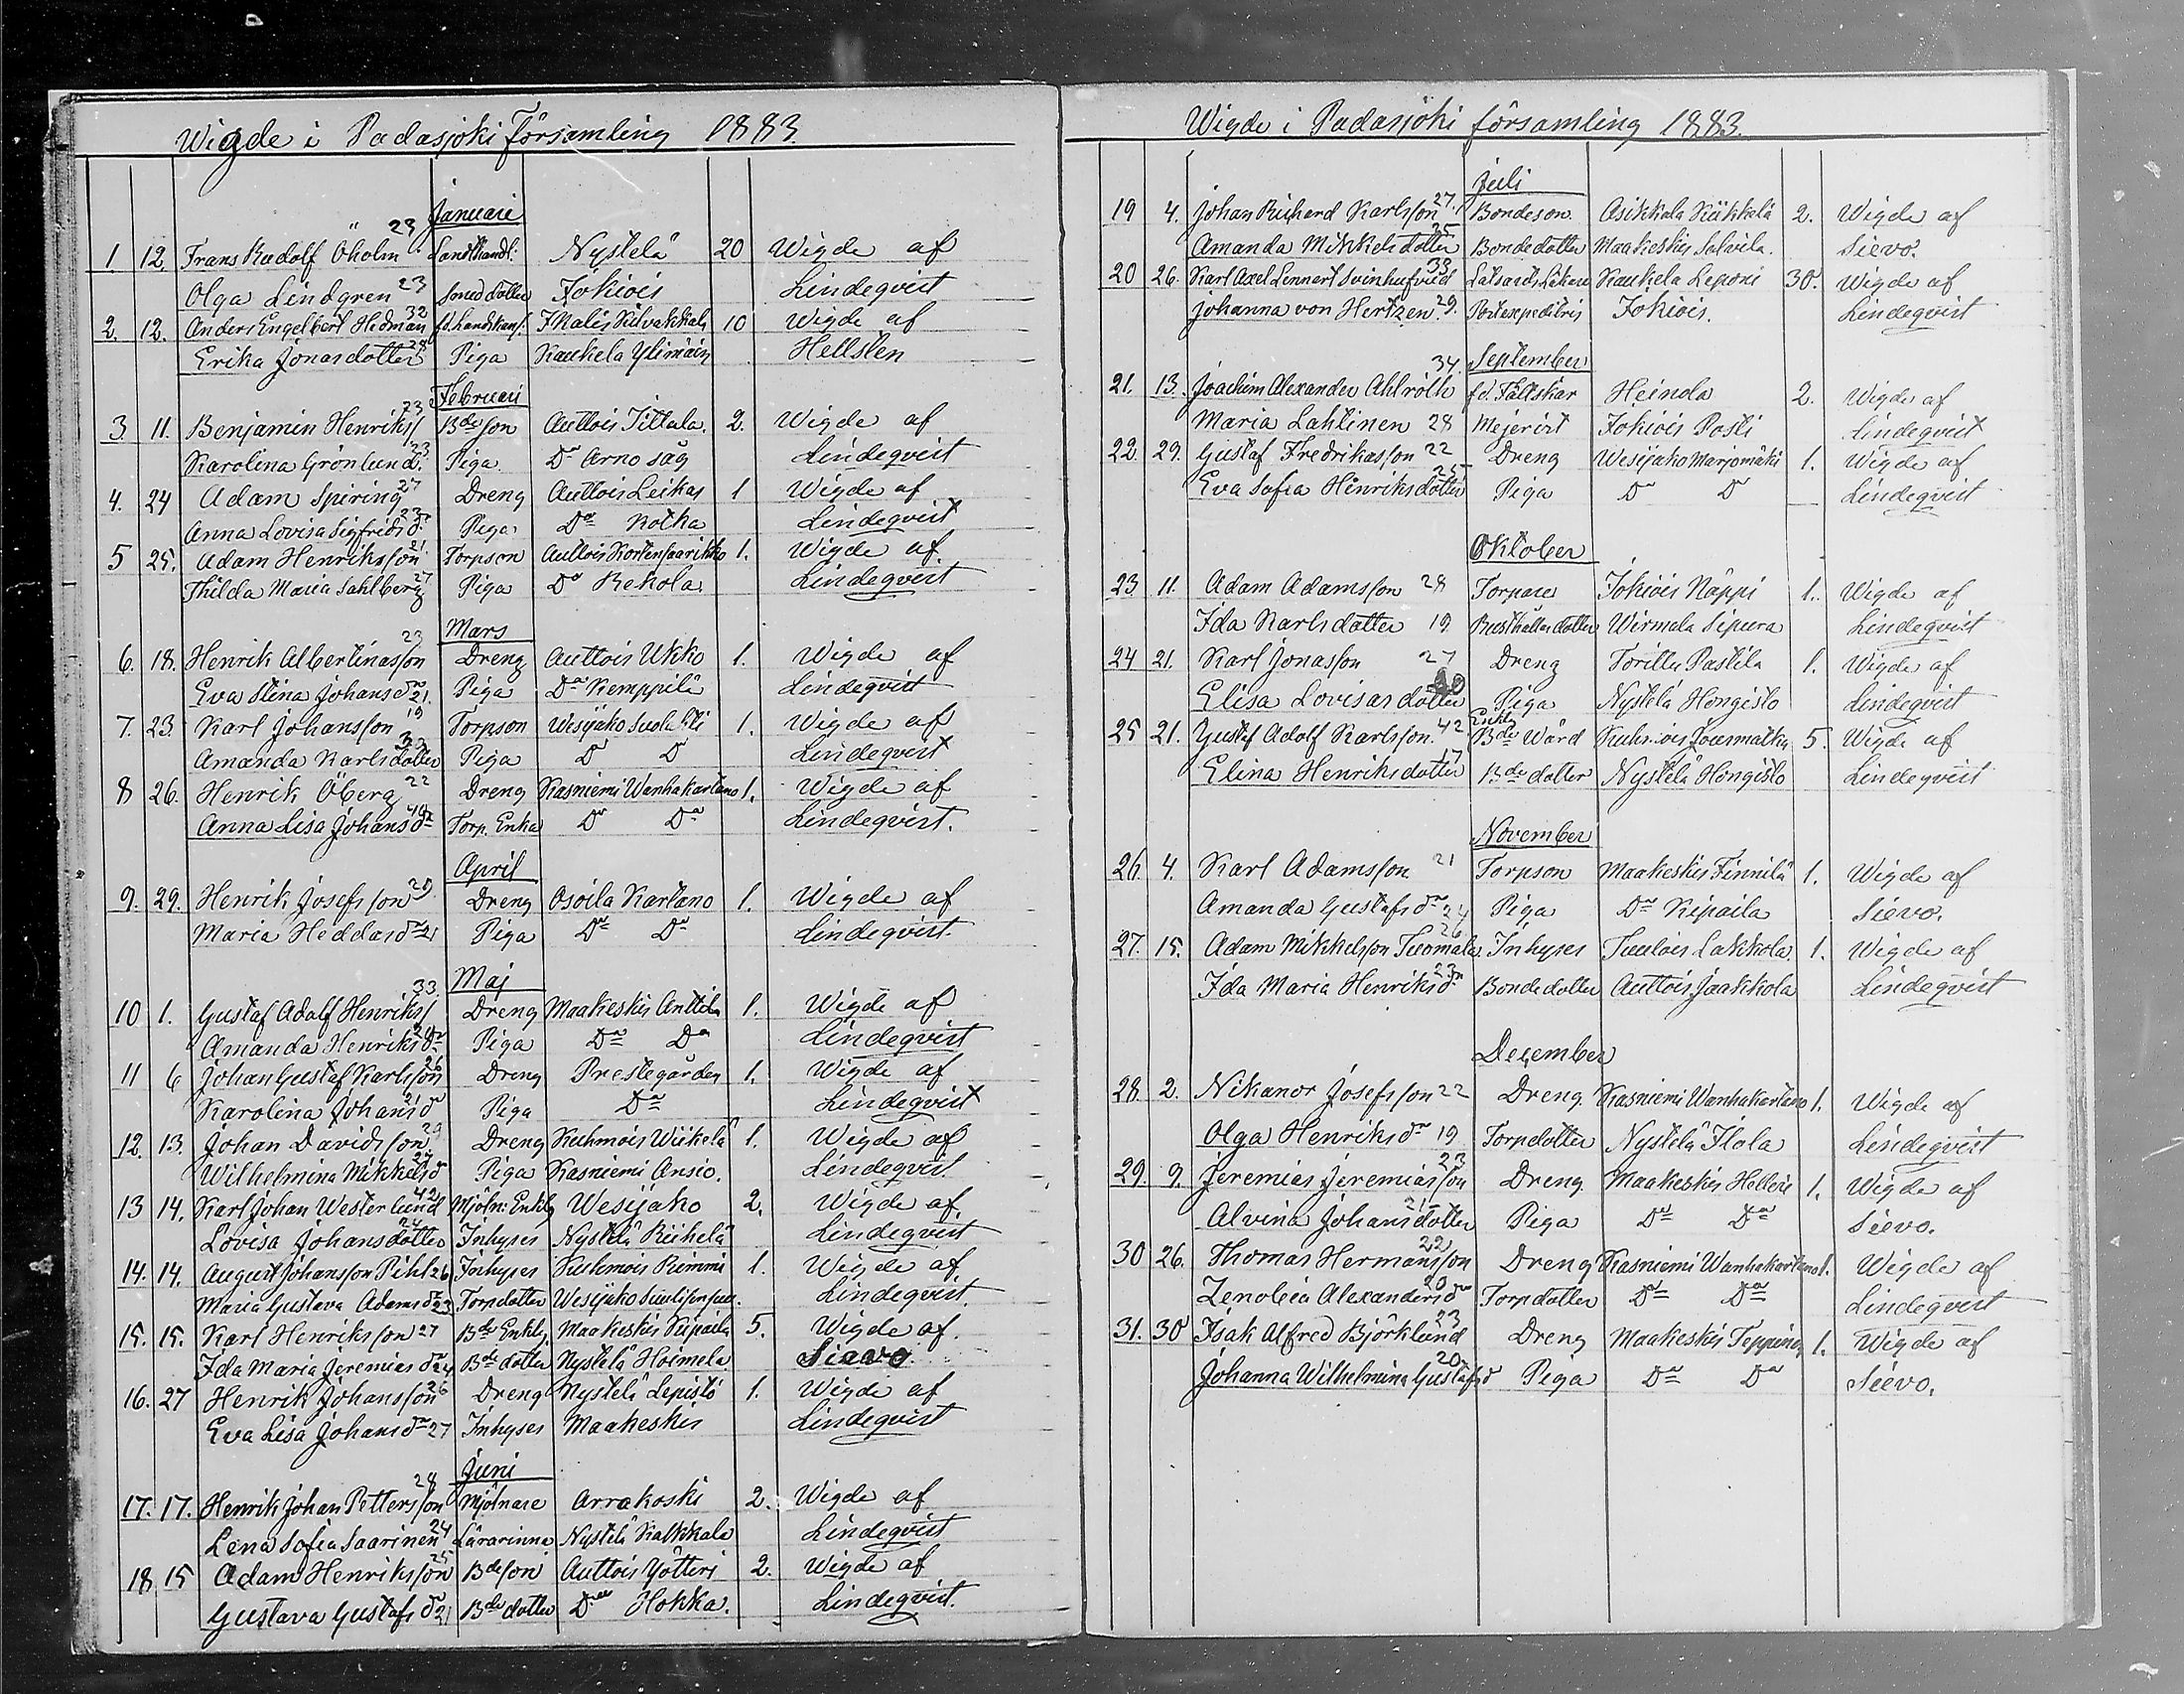 Wigde i Padasjoki Församling 1883.
Januari
1 12. Frans Rudolf Öholm 23 Landthandl: Nystelä 20 Wigde af
Olga Lindgren 23 Smeddotter Jokiois Lindeqvist
2. 12. Anders Engelbert Hedman 32 fd. Landtkansl. 10 Wigde af
Erika Jonasdotter 28 Piga Kaukela Hellsten
Februari
3. 11. Benjamin Henriks/ 23 Bdeson Auttois Tittala. 2. Wigde af
Karolina Grönlund. 33 Piga Do Arno såg Lindeqvist
4. 24 Adam Spiring 27 Dreng Auttois Leikas 1 Wigde af
Anna Lovisa Sigfrids d. 23 Piga Do Kotka Lindeqvist
5 25. Adam Henriksson 21 Torpson Auttois Kortensaarikko 1. Wigde af
Thilda Maria Sahlberg 27 Piga Do Rekola Lindeqvist
Mars
6. 18. Henrik Albertinasson 23 Dreng Auttois Ukko 1. Wigde af
Eva Stina Johansdr 21. Piga Da Kemppilä Lindeqvist
7. 23. Karl Johansson 19 Torpson Wesijako 1. Wigde af
Amanda Karlsdotter 32 Piga Do Do Lindeqvist
8 26. Henrik Öberg 22 Dreng Kasniemi Wanhakartano 1. Wigde af
Anna Lisa Johansdr 44 Torp. Enka Do Da Lindeqvist.
April
9. 29. Henrik Josefsson 25 Dreng Osoila Kartano 1. Wigde af
Maria Heddasdr 21 Piga Do Do Lindeqvist.
Maj
10 1. Gustaf Adolf Henriks/ 33 Dreng Maakeskis Anttila 1. Wigde af
Amanda Henriksdr Piga Da Da Lindeqvist
11 6 Johan Gustaf Karlsson 26 Dreng Prestegården 1. Wigde af
Karolina Johansdr 21 Piga Da Lindeqvist
12. 13. Johan Davidsson 29 Dreng Kuhmois Wiikelä 1. Wigde af
Wilhelmina Mikkelsdr 24 Piga Kasniemi Ansio. Lindeqvist.
13 14. Karl Johan Westerlund 42 Mjöln: Enkl. Wesijako 2. Wigde af.
Lovisa Johansdotter 24 Inhyses Nystelä Riihelä Lindeqvist
14. 14. August Johansson Pihl 26 Inhyses Kuhmois Rimmi 1. Wigde af
Maria Gustava Adamsdr 23 Torpdotter Wesijako Lindeqvist.
15. 15. Karl Henriksson 27 Bde Enkl. Maakeskis Kipaila 5. Wigde af.
Ida Maria Jeremiasdr 24 Bde dotter Nystelä Hoimela Sievo
16. 27 Henrik Johansson 26 Dreng Nystelä Lepistö 1. Wigde af
Eva Lisa Johansdr 27 Inhyses Maakeskis Lindeqvist
Juni
17. 17. Henrik Johan Pettersson 28 Mjölnare Arrakoski 2. Wigde af
Lena Sofia Saarinen 24 Lärarinna Nystelä Kalkkala Lindeqvist
18 15 Adam Henriksson 25 Bdeson Auttois Yötteri 2. Wigde af
Gustava Gustafsdr 21 Bde dotter Do Hokka. Lindeqvist.
Wigde i Padasjoki församling 1883.
Juli
19 4. Johan Richard Karlsson 27. Bondeson Asikkala Kiikkelä 2. Wigde af
Amanda Mikkelsdotter 25 Bondedotter Maakeskis Salvila. Sievo.
20 26. Karl Axel Lennart Svinhufvud 33 Kaukela Leponi 30. Wigde af
Johanna von Hertzen 29. Postexpeditris Jokiois. Lindeqvist
September
21. 13. Joachim Alexander Ahlroth 34. fd. Fältskär Heinola 2. Wigde af
Maria Lahtinen 28 Mejerist Jokiois Posti Lindeqvist
22. 29. Gustaf Fredrikasson 22 Dreng Wesijako Marjomäki 1. Wigde af
Eva Sofia Henriksdotter 25 Piga Do Do Lindeqvist
Oktober
23 11. Adam Adamsson 28 Torpare Jokiois Näppi 1. Wigde af
Ida Karlsdotter 19. Rusthållardotter Wirmela Sipura Lindeqvist
24 21. Karl Jonasson 27 Dreng Torittu Pastila 1. Wigde af
Elisa Lovisasdotter 40 Piga Nystelä Hongisto Lindeqvist
25 21. Gustaf Adolf Karlsson. 42 Bde Wärd Enkl. Kuhmois 5. Wigde af
Elina Henriksdotter 17 Bde dotter Nystelä Hongisto Lindeqvist
November
26. 4. Karl Adamsson 21 Torpson Maakeskis Finnilä 1. Wigde af
Amanda Gustafsdr 24 Piga Do Kipaila Sievo.
27. 15. Adam Mikkelsson Tuomala 26 Inhyses Tuulois Lakkola 1. Wigde af
Ida Maria Henriksdr 23 Bondedotter Auttois Jaakkola Lindeqvist
December
28. 2. Nikanor Josefsson 22 Dreng Kasniemi Wanhakartano 1. Wigde af
Olga Henriksdr 19 Torpdotter Nystelä Ilola Lindeqvist
29. 9. Jeremias Jeremiasson 23 Dreng Maakeskis Hellere 1. Wigde af
Alvina Johansdotter 21 Piga Do Da Sievo.
30 26. Thomas Hermansson 22 Dreng Kasniemi Wanhakartano 1. Wigde af
Zenobia Alexandersdr 20 Torpdotter Da Da Lindeqvist
31. 30 Isak Alfred Björklund 23 Dreng Maakeskis Teppinen 1. Wigde af
Johanna Wilhelmina Gustafsd 20 Piga Da Da Sievo.